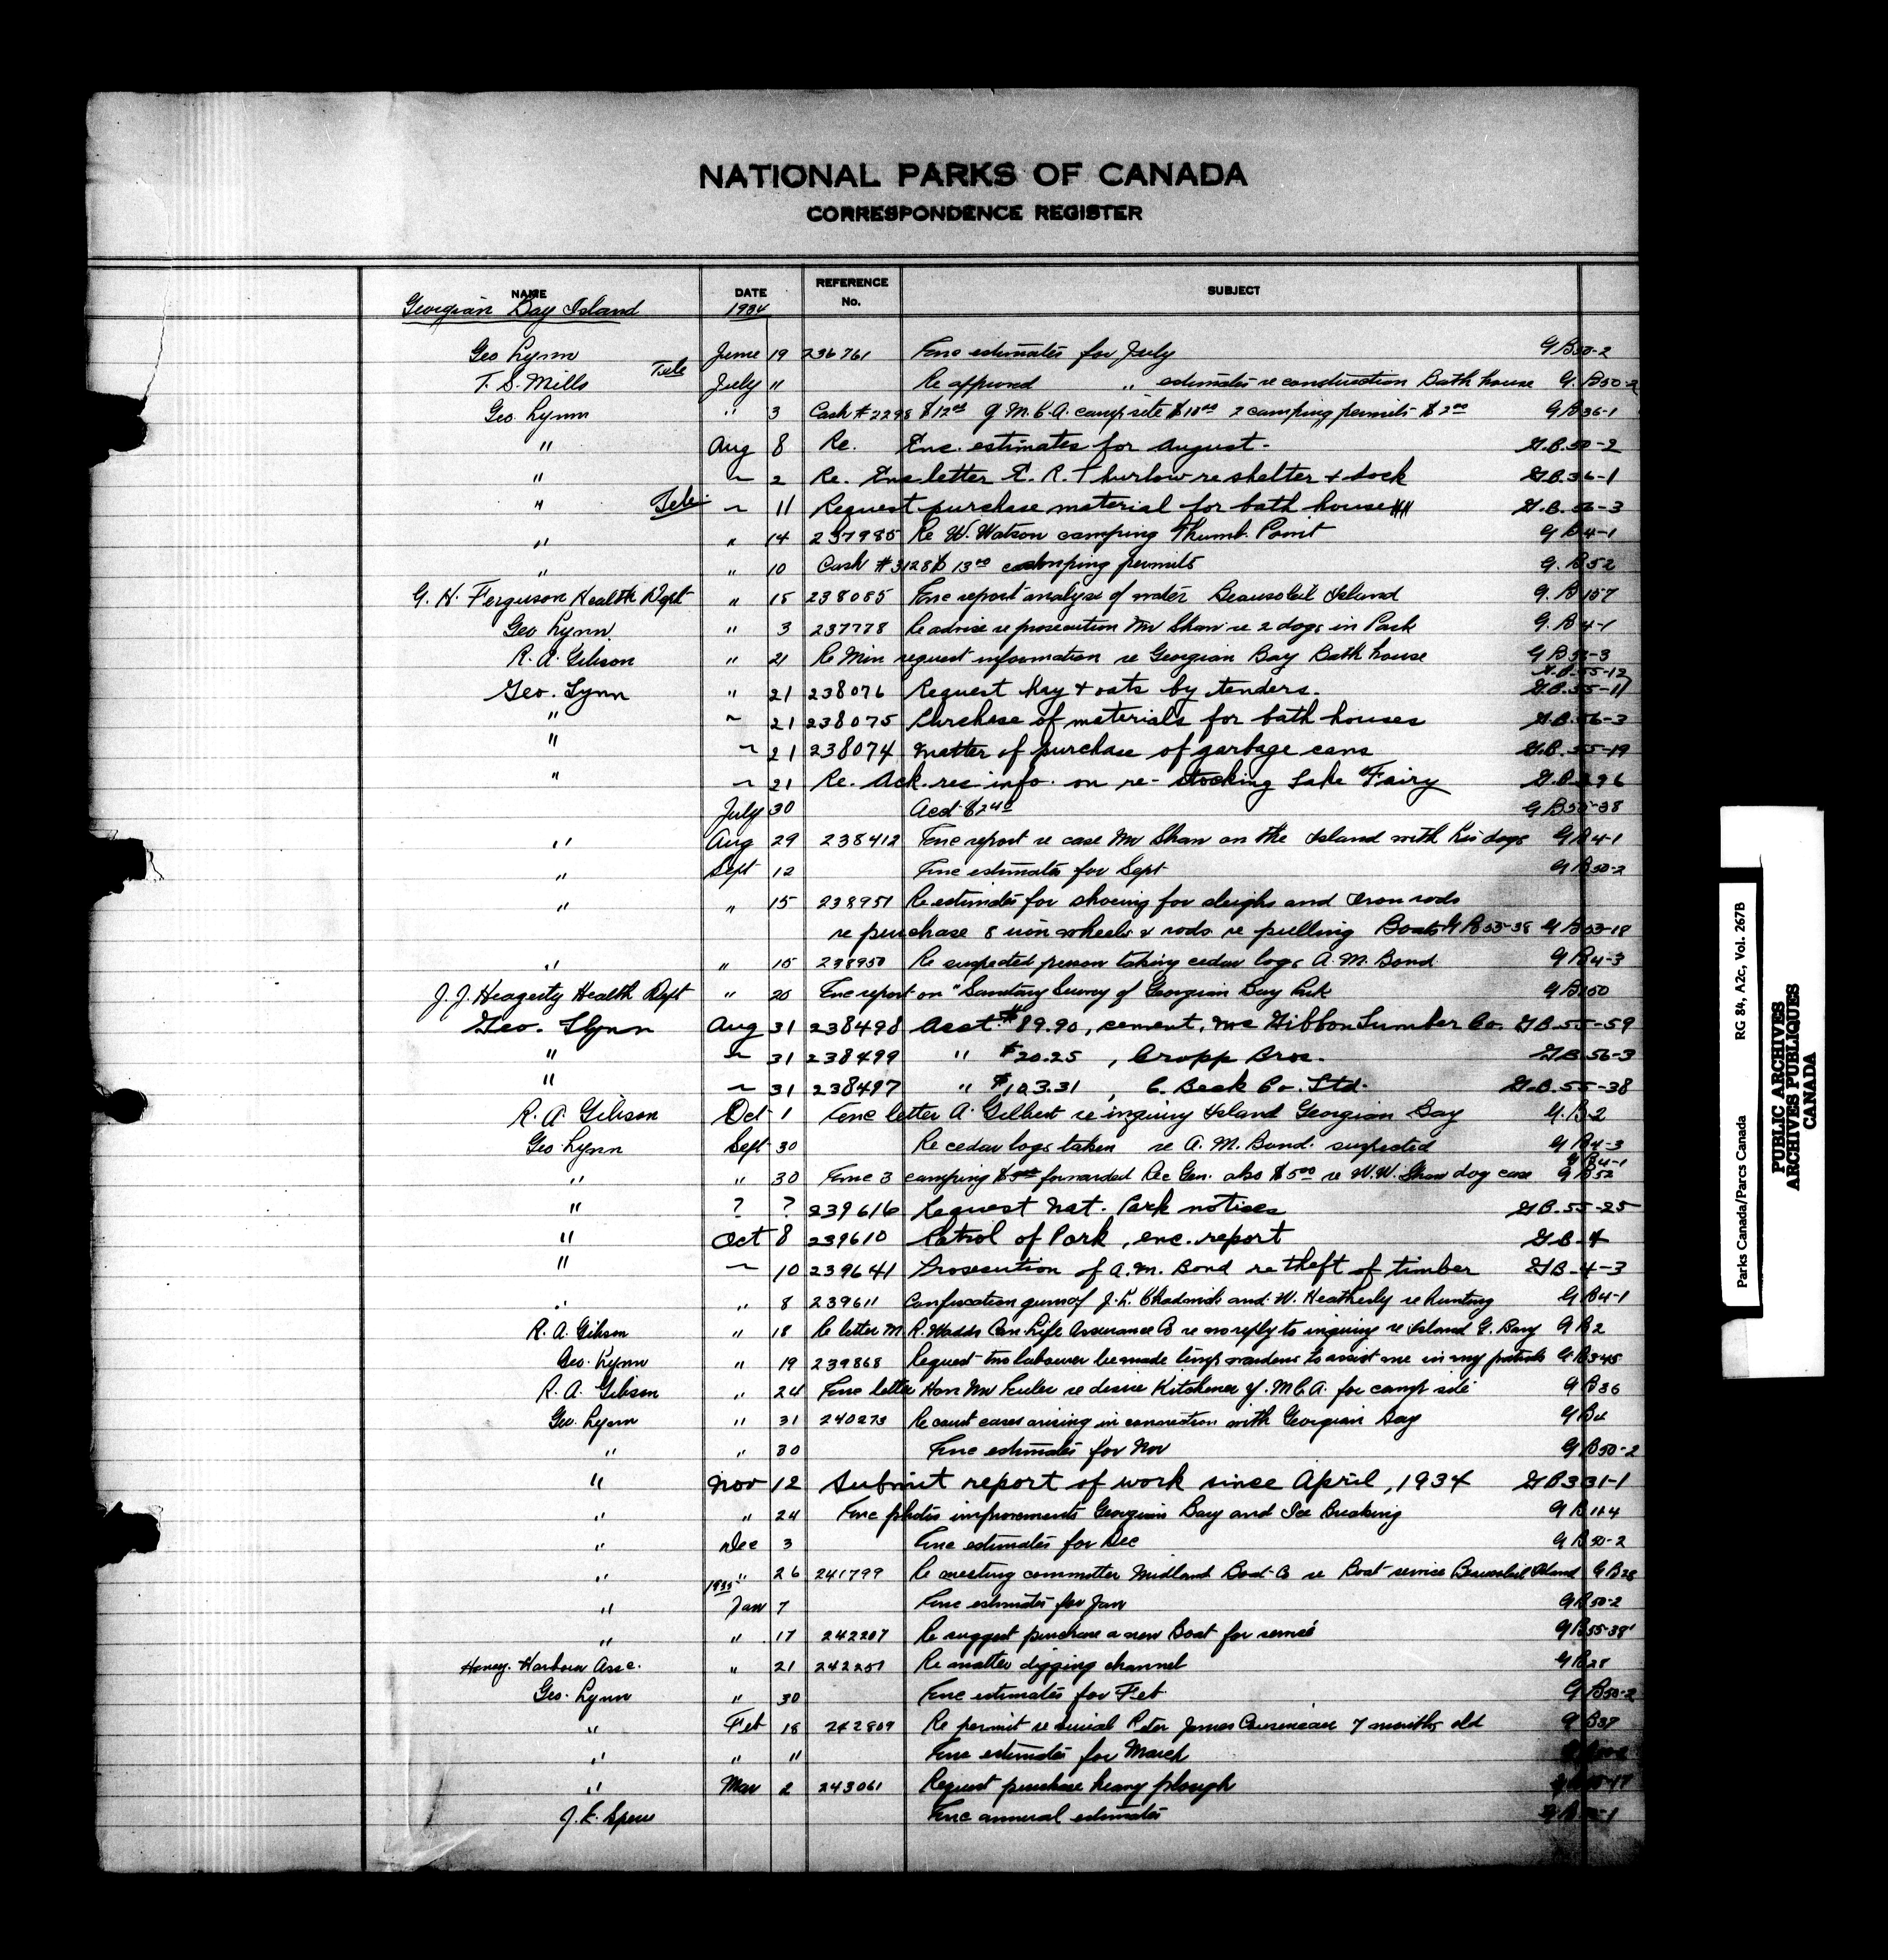 NATIONAL PARKS OF CANADA
CORRESPONDENCE REGISTER
NAME DATE REFERENCE No. SUBJECT
Georgian Bay Island 1934
Geo Lynn June 19 236761 Enc estimates for July G B50-2
T. S. Mills Tele July " Re approved " estimates re construction Bath house G. B50-2
Geo. Lynn " 3 Cash # 2298 $12.00 Y.M.C.A. camp site $10.00 2 camping permits $2.00 G B36-1
" Aug 8 Re. Enc. estimates for August. G.B.50-2
" ~ 2 Re. Enc letter E. R. Thurlow re shelter + dock G.B.36-1
" Tele. ~ 11 Request purchase material for bath house G.B.56-3
" " 14 237985 Re W. Watson camping Thumb. Point G B4-1
" " 10 Cash #3128 $13.00 camping permits G. B52
G. H. Ferguson Health Dept " 15 238085 Enc report analyse of water Beausoleil Island G. B157
Geo Lynn " 3 237778 Re advise re prosecution Mr Shaw re 2 dogs in Park G. B4-1
R. A. Gibson " 21 Re Min request information re Georgian Bay Bath house G B56-3
G.B.55-12
Geo. Lynn " 21 238076 Request hay + oats by tenders. G.B.55-11
" ~ 21 238075 Purchase of materials for bath houses G.B.56-3
" ~ 21 238074 Matter of purchase of garbage cans G.B.55-19
" ~ 21 Re. Ack. rec info. on re-stocking Lake "Fairy G.B.296
July 30 Acct $2.40 G B55-38
" Aug 29 238412 Enc report re case Mr Shaw on the Island with his dogs G B4-1
" Sept 12 Enc estimates for Sept G B50-2
" " 15 238951 Re estimates for shoeing for sleighs and Iron rods
re purchase 8 iron wheels & rods re pulling Boats G B55-38 G B53-18
" " 15 238950 Re suspected person taking cedar logs A. M. Bond G B4-3
J. J. Heagerty Health Dept " 20 Enc report on "Sanitary Survey of Georgian Bay Park G B150
Geo. Lynn Aug 31 238498 Acct. $89.90, cement, McGibbon Lumber Co. G.B.55-59
" ~ 31 238499 " $20.25, Cropp Bros. G.B.56-3
" ~ 31 238497 " $103.31, C. Beck Co. Ltd. G.B.55-38
R. A. Gibson Oct 1 Enc letter A. Gilbert re inquiry Island Georgian Bay G. B2
Geo Lynn Sept 30 Re cedar logs taken re A. M. Bond suspected G B4-3
G B4-1
" " 30 Enc 3 camping $3.00 forwarded Rec Gen. also $5.00 re W.W. Shaw dog case G B52
" ? ? 239616 Request Nat. Park notices G.B.55-25
" Oct 8 239610 Patrol of Park, enc. report G.B-4
" ~ 10 239641 Prosecution of A.M. Bond re theft of timber G.B-4-3
" " 8 239611 Confiscation guns of J. L. Chadwick and W. Heatherly re hunting G B4-1
R. A. Gibson " 18 Re letter M R. Wadds Con. Life Assurance Co re no reply to inquiry re Island G. Bay G B2
Geo. Lynn " 19 239868 Request two labourer be made temp wardens to assist me in my patrols G B345
R. A. Gibson " 24 Enc letter Hon Mr Euler re desire Kitchener Y.M.C.A. for camp site G B36
Geo. Lynn " 31 240273 Re court cases arising in connection with Georgian Bay G B4
" " 30 Enc estimates for Nov G B50-2
" Nov 12 Submit report of work since April, 1934 G B331-1
" " 24 Enc photos improvements Georgian Bay and Ice Breaking G B114
" Dec 3 Enc estimates for Dec G B50-2
" " 26 241799 Re meeting committee Midland Boat Co re Boat service Beausoleil Island G B28
1935
" Jan 7 Enc estimates for Jan G B50-2
" " 17 242207 Re suggest purchase a new Boat for service G B55-38
Honey Harbour Asse. " 21 242251 Re matter digging channel G B28
Geo. Lynn " 30 Enc estimates for Feb G B50-2
" Feb 18 242809 Re permit re burial Peter James 7 months old G B38
" " " Enc estimates for March
" Mar 2 243061 Request purchase heavy plough
J. E. Spero Enc annual estimates
Parks Canada/Parcs Canada RG 84, A2c, Vol. 267B
PUBLIC ARCHIVES
ARCHIVES PUBLIQUES
CANADA